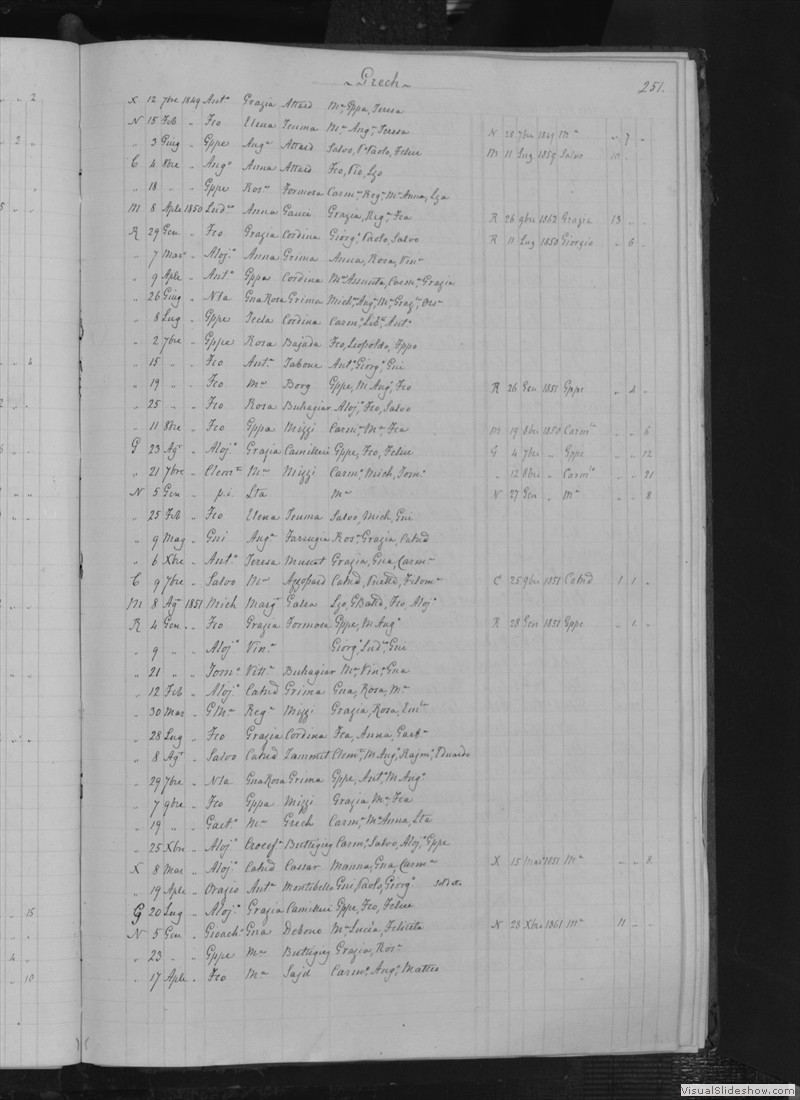 Grech
251.
X 12 7bre 1849 Antᵒ Grazia Attard Mᵃ Gppa, Teresa
N 15 Feb " Fco Elena Teuma Mᵃ Angᵃ, Teresa N 28 7bre 1849 Mᵃ " 7 "
" 3 Giug " Gppe Angᵃ Attard Salvo, Paolo, Felice M 11 Lug 1859 Salvo 10 " "
C 4 8bre " Angᵒ Anna Attard Fco, Pio, Lzo
" 18 " " Gppe Rosᵃ Formosa Carmᵃ, Regᵃ Mᵃ Anna, Lza
M 8 Aple 1850 Ludᵒ Anna Gauci Grazia, Regᵃ, Fca R 26 9bre 1862 Grazia 13 " "
R 29 Gen " Fco Grazia Cordina Giorgᵒ, Paolo, Salvo R 11 Lug 1850 Giorgio " 6 "
" 7 Mar " Alojᵒ Anna Grima Anna, Rosa, Vinᵃ
" 9 Aple " Antᵒ Gppa Cordina Mᵃ Assunta, Carmᵃ, Grazia
" 26 Giug " Nla Gna Rosa Grima Michᵉ, Angᵒ, Mᵃ Grazᵃ
" 8 Lug " Gppe Tecla Cordina Carmᵒ, Antᵒ
" 2 7bre " Gppe Rosa Bajada Fco, Leopoldo, Fppo
" 15 " " Fco Antᵃ Tabone Antᵒ, Giorgᵒ, Gni
" 19 " " Fco Mᵃ Borg Gppe, M Angᵒ, Fco R 26 Gen 1851 Gppe " 4 "
" 25 " " Fco Rosa Buhagiar Alojᵒ, Fco, Salvo
" 11 8bre " Fco Gppa Mizzi Carmᵃ, Mᵃ, Fca M 19 8bre 1850 Carmᵃ " " 6
G 23 Agᵗ " Alojᵒ Grazia Camilleri Gppe, Fco, Felice G 4 7bre " Gppe " " 12
" 21 7bre " Clemᵗᵉ Mᵃ Mizzi Carmᵒ, Mich, Tomᵒ " 12 8bre " Carmᵒ " " 21
N 5 Gen " p.i. Lta Mᵃ N 27 Gen " Mᵃ " " 8
" 25 Feb " Fco Elena Teuma Salvo, Mich, Gni
" 9 Mag " Gni Angᵃ Farrugia Rosᵃ, Grazia, Catnd
" 6 Xbre " Antᵒ Teresa Muscat Grazia, Gna, Carmᵃ
C 9 7bre " Salvo Mᵃ Azzopard Catnd, Filomᵃ C 25 9bre 1851 Catnd 1 1 "
M 8 Agᵗ 1851 Mich Margᵗ Galea Lzo, GBatta, Fco, Alojᵒ
R 4 Gen " Fco Grazia Formosa Gppe, M Angᵒ R 28 Gen 1851 Gppe " 1 "
" 9 " " Alojᵒ Vinᵃ Giorgᵒ, Ludᵒ, Gni
" 21 " " Tomᵒ Vittᵃ Buhagiar Mᵃ, Vinᵃ, Gna
" 12 Feb " Alojᵒ Catnd Grima Gna, Rosa, Mᵃ
" 30 Mar " GMᵃ Regᵃ Mizzi Grazia, Rosa
" 28 Lug " Fco Grazia Cordina Fca, Anna, Gaetᵃ
" 8 Agᵗ " Salvo Catnd Zammit Clemᵗᵉ, M Angᵒ, Rajmᵒ, Eduardo
" 29 7bre " Nla Gna Rosa Grima Gppe, Antᵒ, M Angᵒ
" 7 9bre " Fco Gppa Mizzi Grazia, Mᵃ, Fca
" 19 " " Gaetᵒ Mᵃ Grech Carmᵃ, Mᵃ Anna, Lta
" 25 Xbre " Alojᵒ Crocefᵃ Buttigieg Carmᵒ, Salvo, Alojᵒ, Gppe
X 8 Mar " Alojᵒ Catnd Cassar Marina, Gna, Carmᵃ X 15 Mar 1851 Mᵃ " " 8
" 19 Aple " Orazio Antᵃ Montibello Gni, Paolo, Giorgᵒ
G 20 Lug " Alojᵒ Grazia Camilleri Gppe, Fco, Felice
N 5 Gen " Gioachᵒ Gna Debono Mᵃ Lucia, Felicita N 28 Xbre 1861 Mᵃ 11 " "
" 23 " " Gppe Mᵃ Buttigieg Grazia, Rosᵃ
" 17 Aple " Fco Mᵃ Sajd Carmᵒ, Angᵒ, Matteo
VisualSlideshow.com